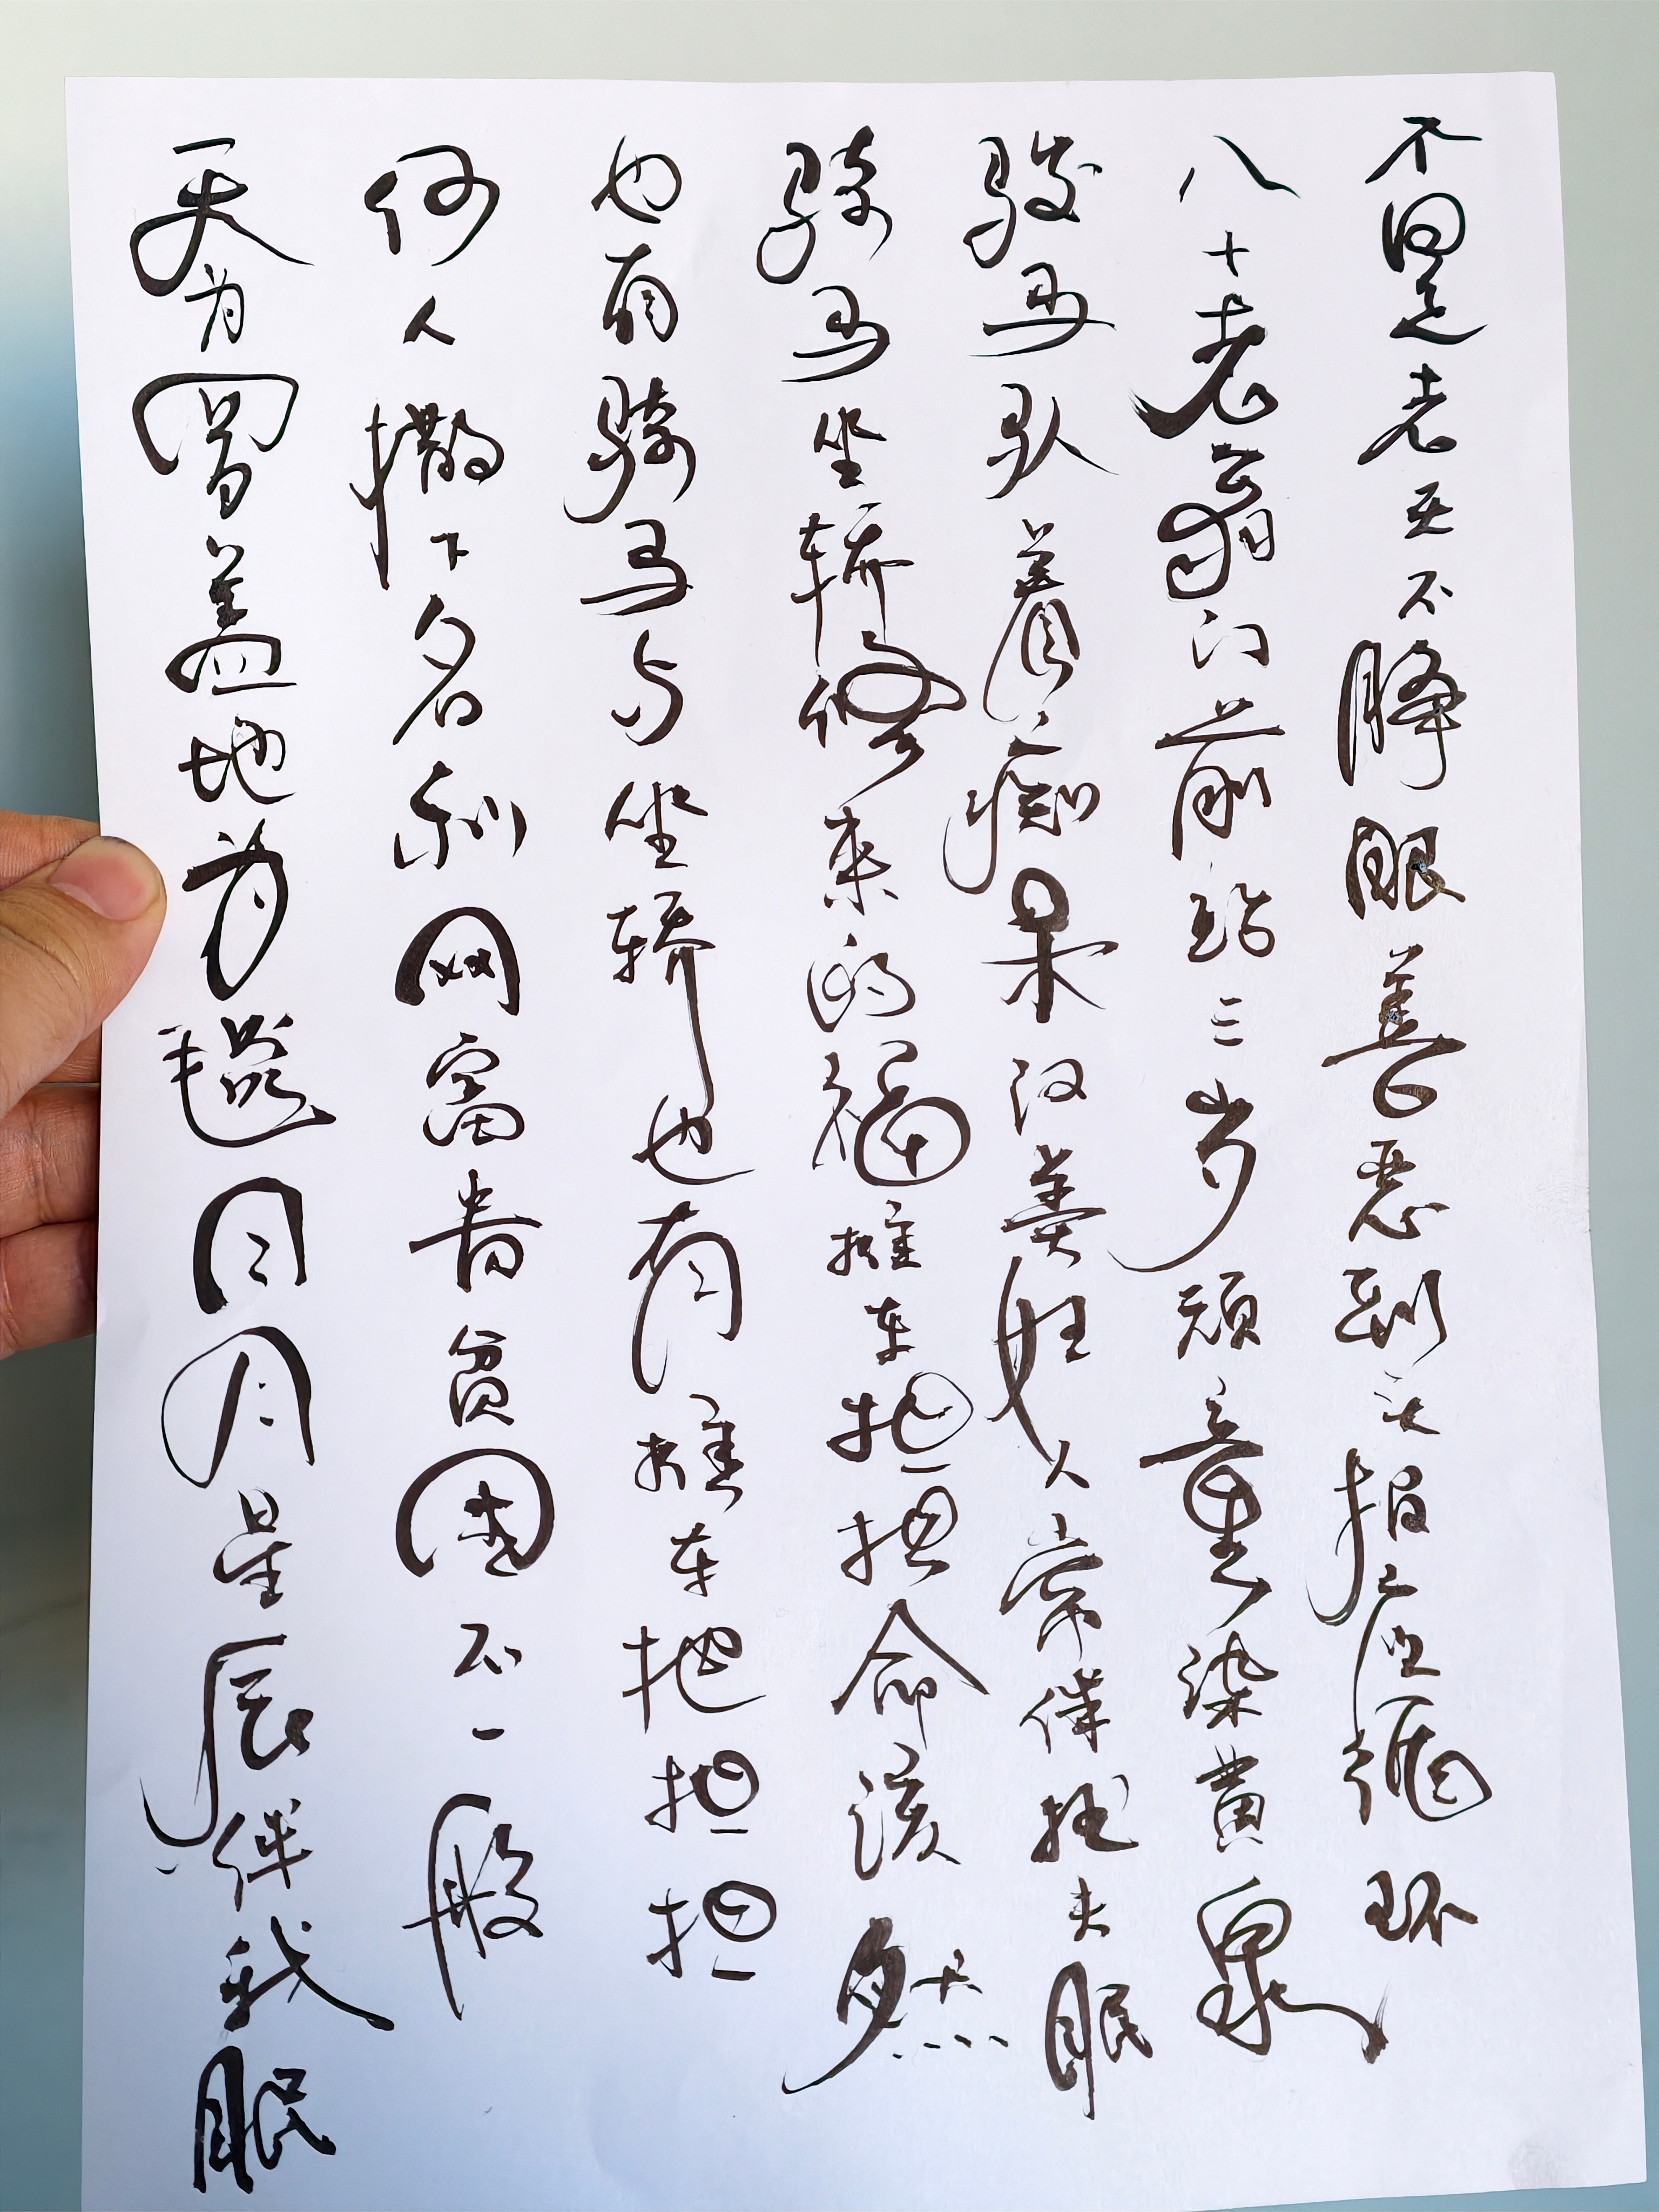 不是老天不睁眼善恶到头报应循环
八十老翁门前站三岁顽童染黄泉
骏马驮着痴呆汉美妇人常伴拙夫眠
骑马坐轿修来的福推车担担命该然
也有骑马与坐轿也有推车把担担
何人撒下名利网富贵贫困不一般
天为罗盖地为毯日月星辰伴我眠